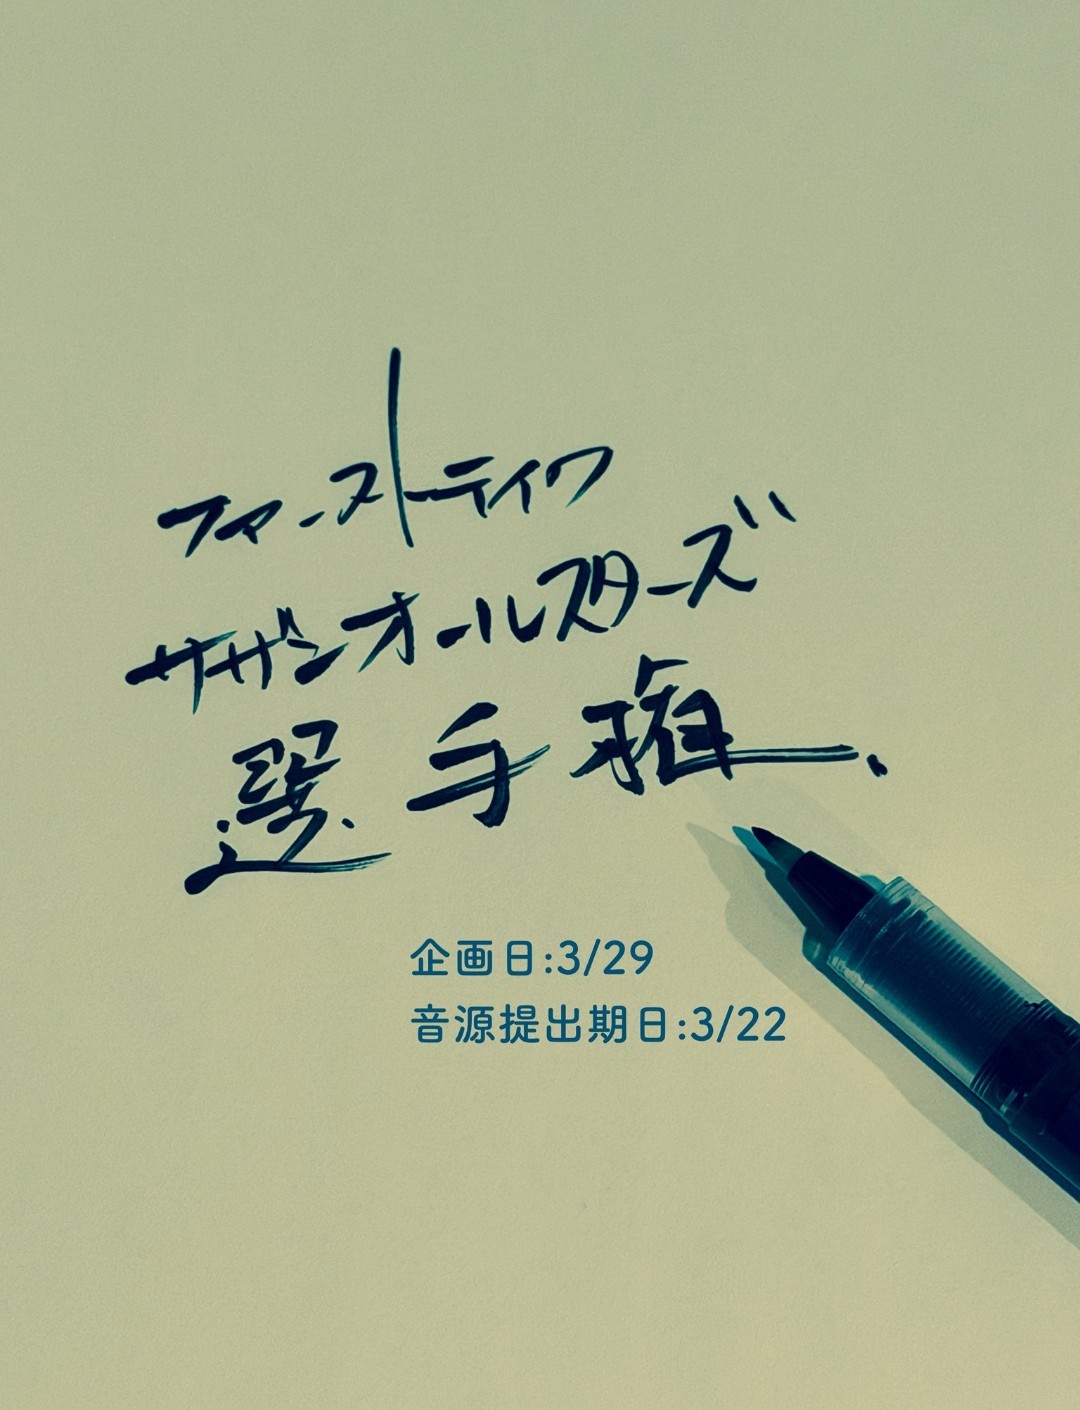 ファーストテイク
サザンオールスターズ
選手権、
企画日:3/29
音源提出期日:3/22